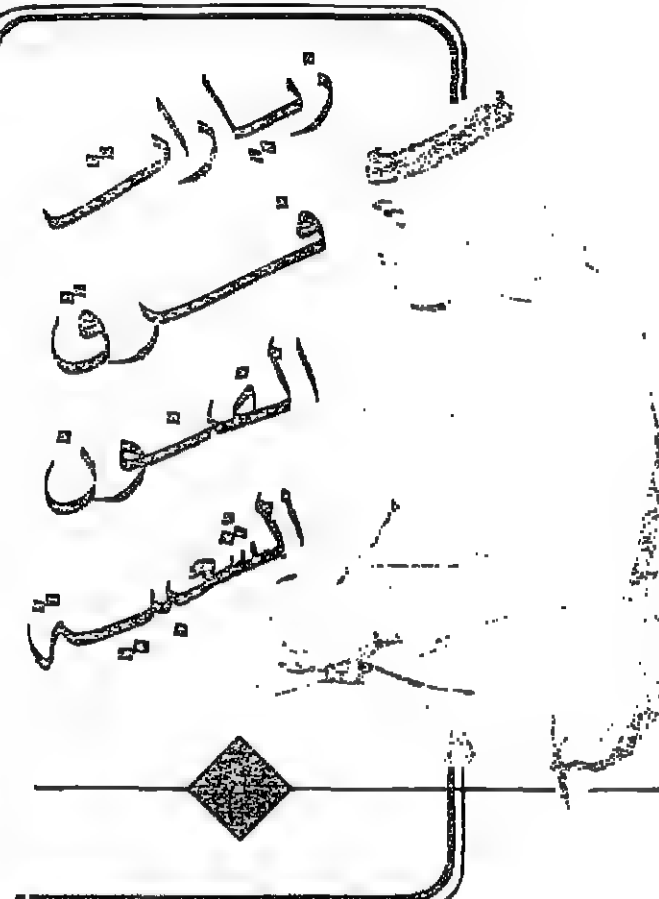 زيارات
فرق
الفنون
الشعبية